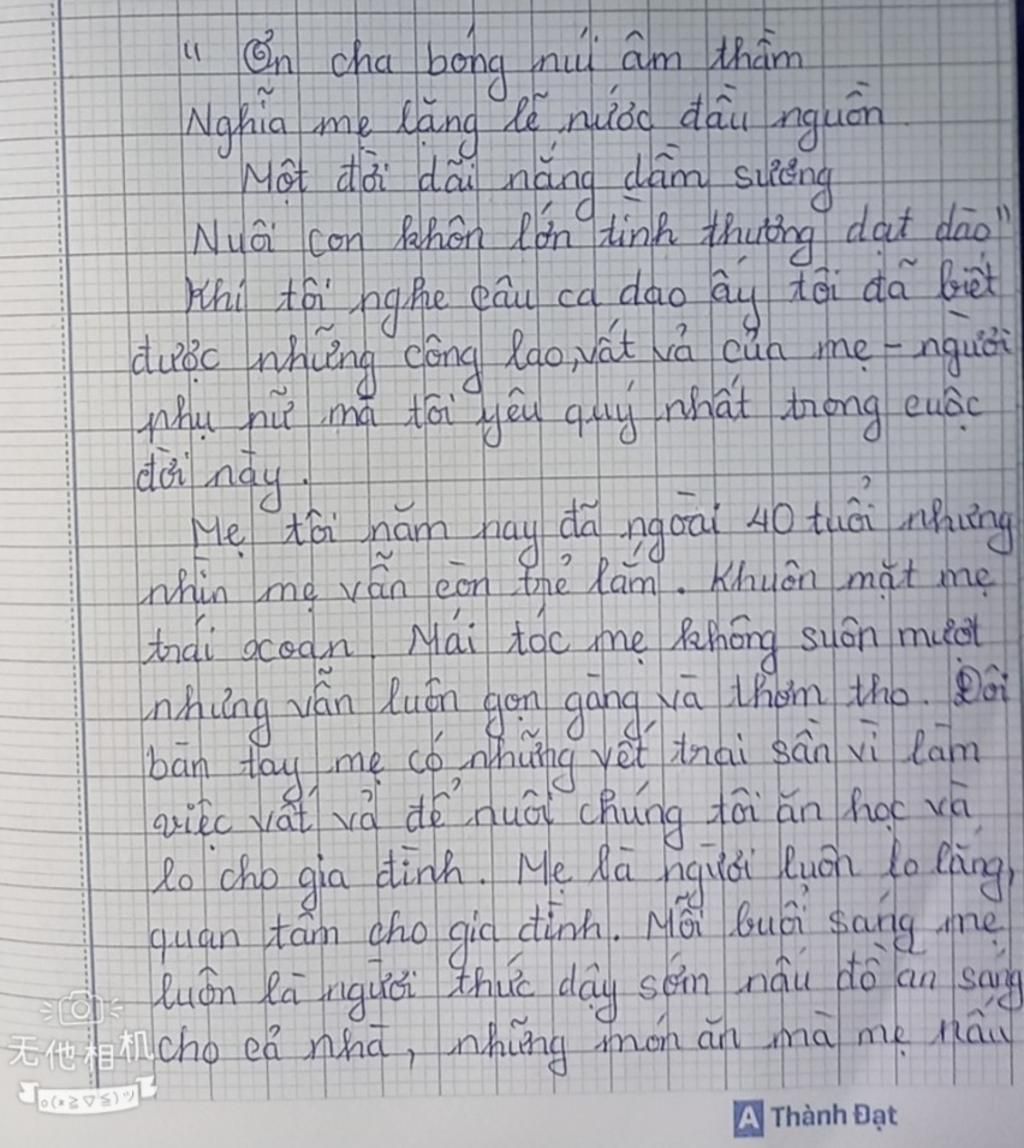 "Ơn cha bóng núi âm thầm
Nghĩa mẹ lặng lẽ nước đầu nguồn
Một đời dãi nắng dầm sương
Nuôi con khôn lớn tình thương dạt dào"
Khi tôi nghe câu ca dao ấy tôi đã biết
được những công lao, vất vả của mẹ - người
phụ nữ mà tôi yêu quý nhất trong cuộc
đời này.
Mẹ tôi năm nay đã ngoài 40 tuổi nhưng
nhìn mẹ vẫn còn trẻ lắm. Khuôn mặt mẹ
trái xoan. Mái tóc mẹ không suôn mượt
nhưng vẫn luôn gọn gàng và thơm tho. Đôi
bàn tay mẹ có những vết trai sần vì làm
việc vất vả để nuôi chúng tôi ăn học và
lo cho gia đình. Mẹ là người luôn lo lắng,
quan tâm cho gia đình. Mỗi buổi sáng mẹ
luôn là người thức dậy sớm nấu đồ ăn sáng
cho cả nhà, những món ăn mà mẹ nấu
无他相机
o(*≧▽≦)ツ
A Thành Đạt